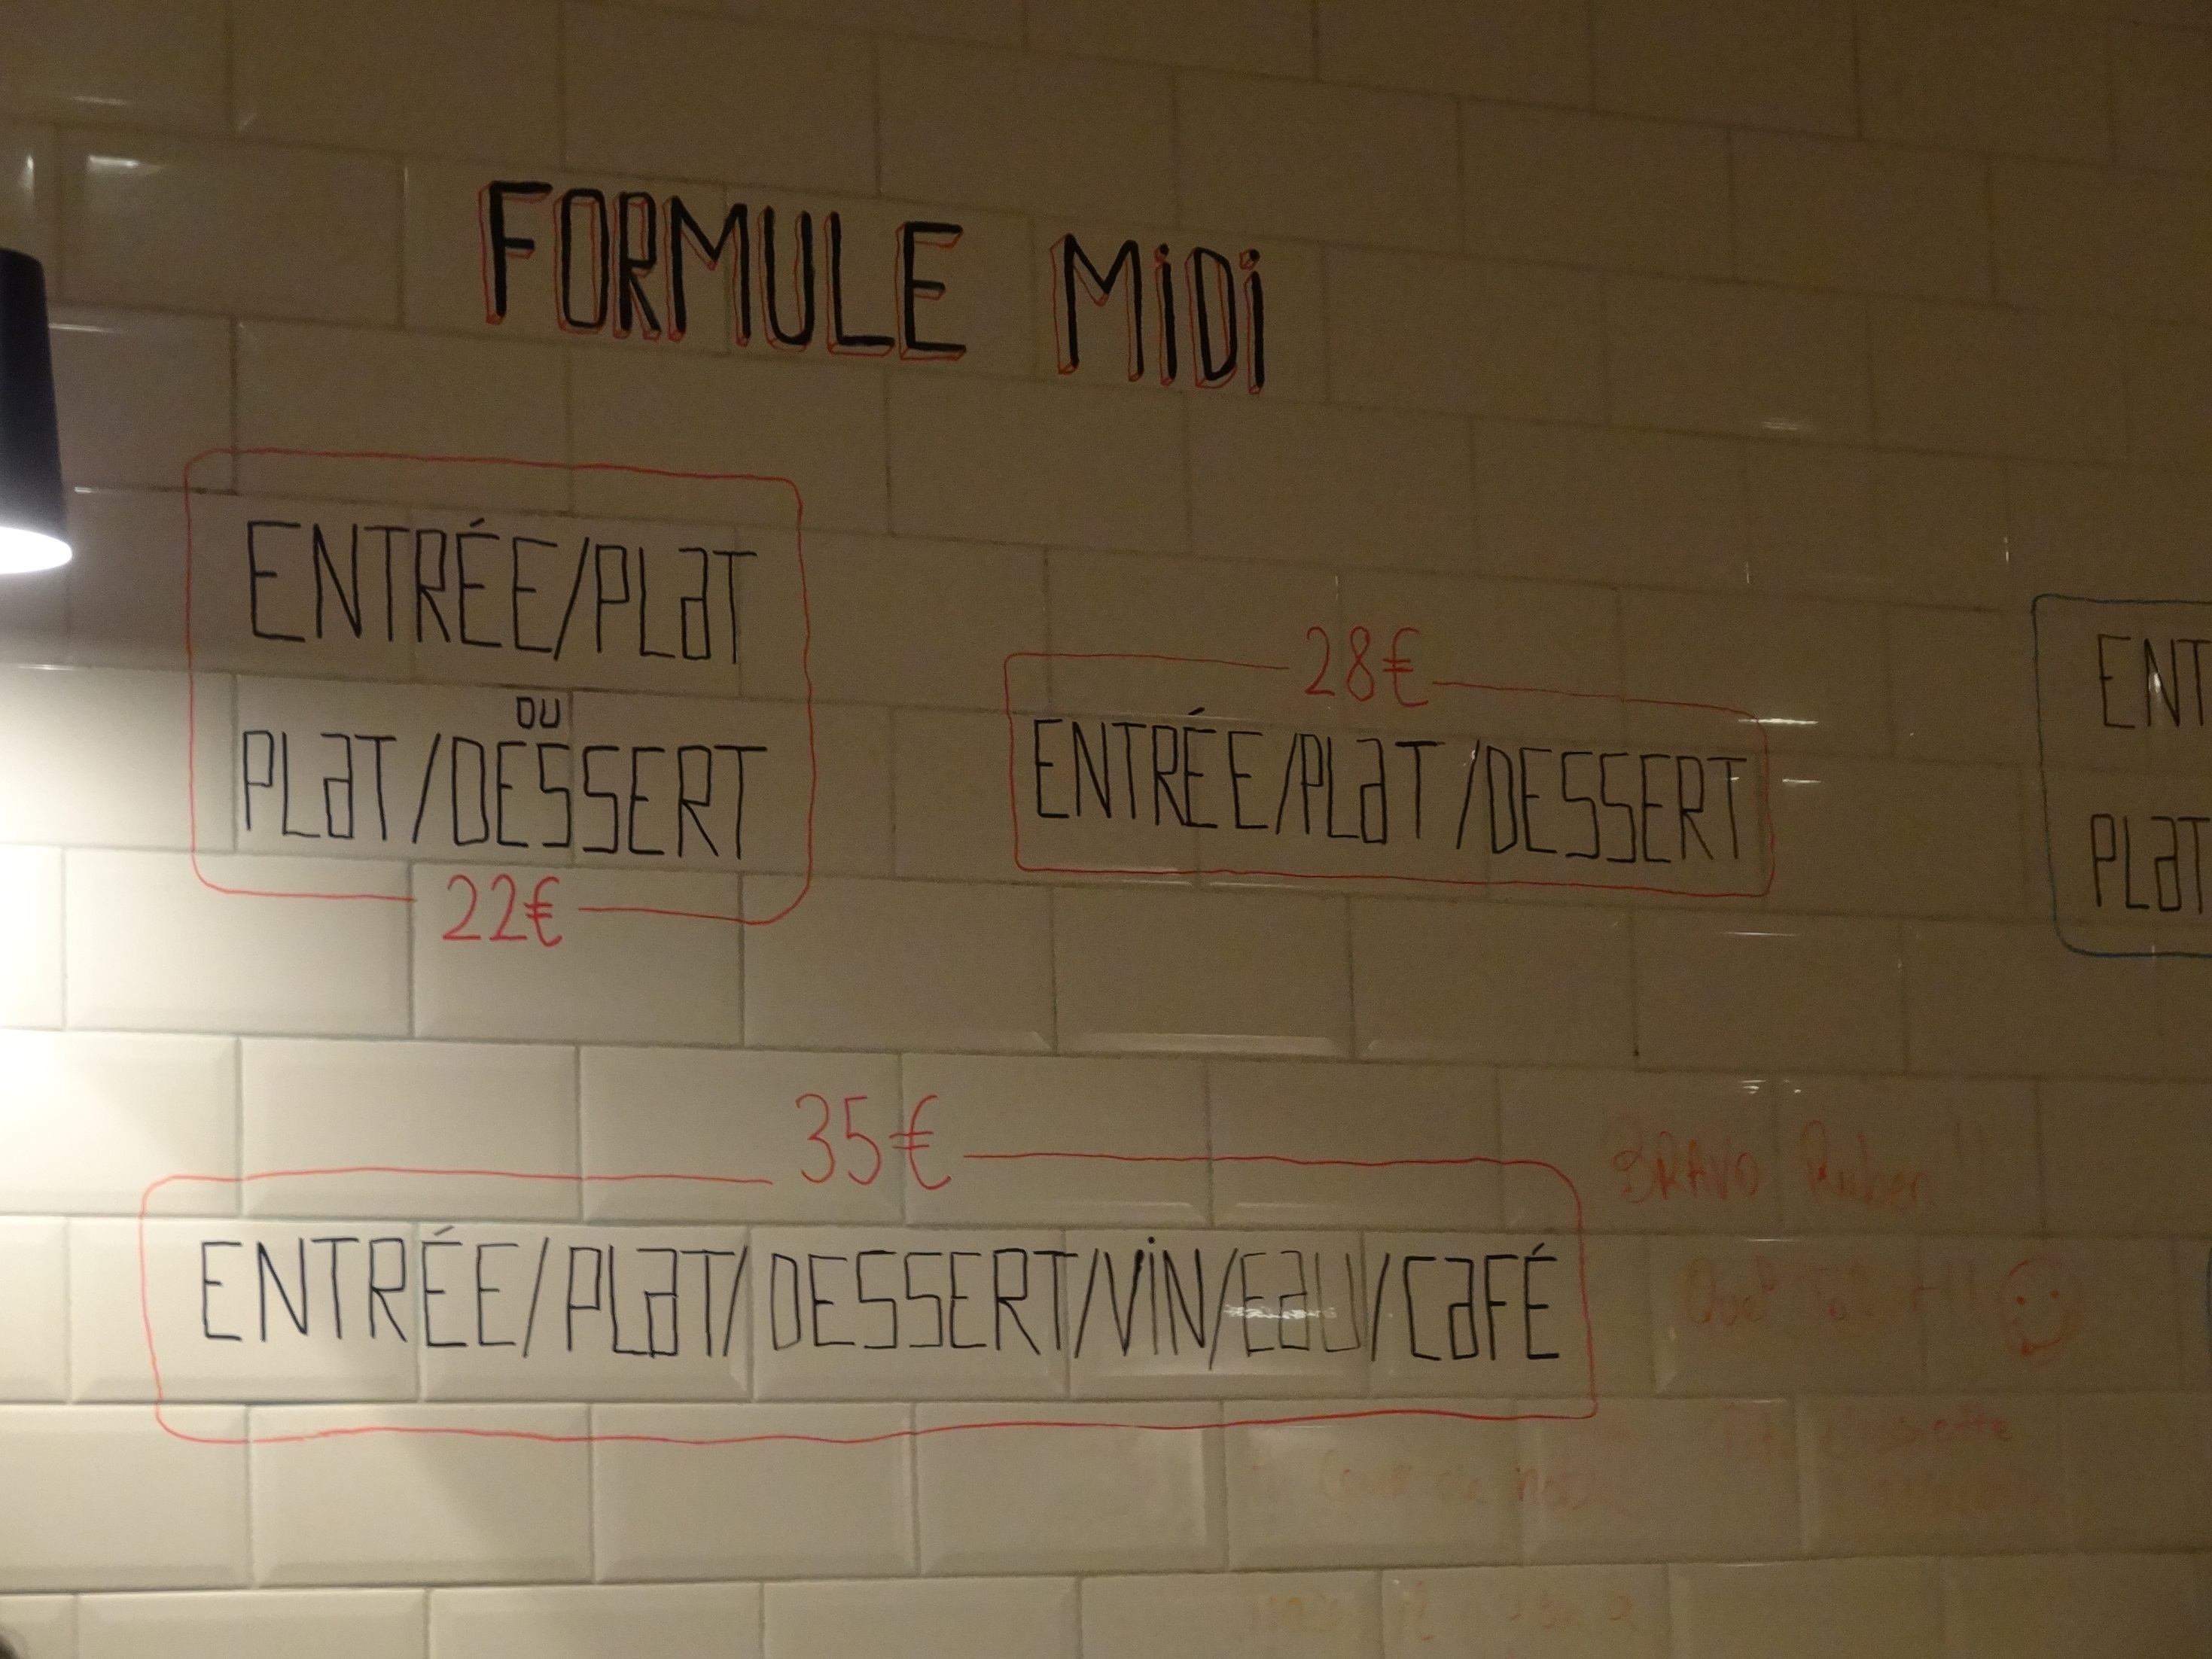 FORMULE MiDi
ENTRÉE/PLaT
OU
PLaT/DESSERT
22€
28€
ENTRÉE/PLaT/DESSERT
ENT
PLaT
35€
ENTRÉE/PLaT/DESSERT/ViN/EaU/CaFÉ
BRAVO Ruben!!